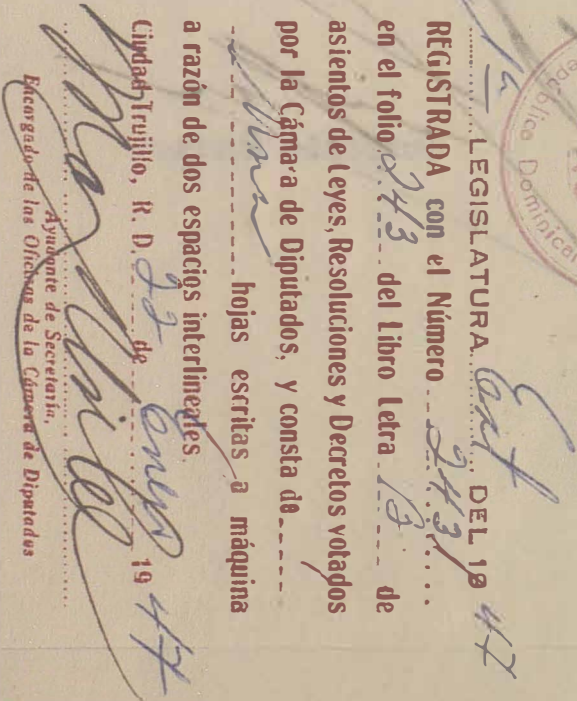 República Dominicana
1a LEGISLATURA Ext DEL 1947
REGISTRADA con el Número 243
en el folio 243 del Libro Letra B de
asientos de Leyes, Resoluciones y Decretos votados
por la Cámara de Diputados, y consta de
Una hojas escritas a máquina
a razón de dos espacios interlineales.
Ciudad Trujillo, R. D. 22 de Enero 1947
Ayudante de Secretaría,
Encargado de las Oficinas de la Cámara de Diputados